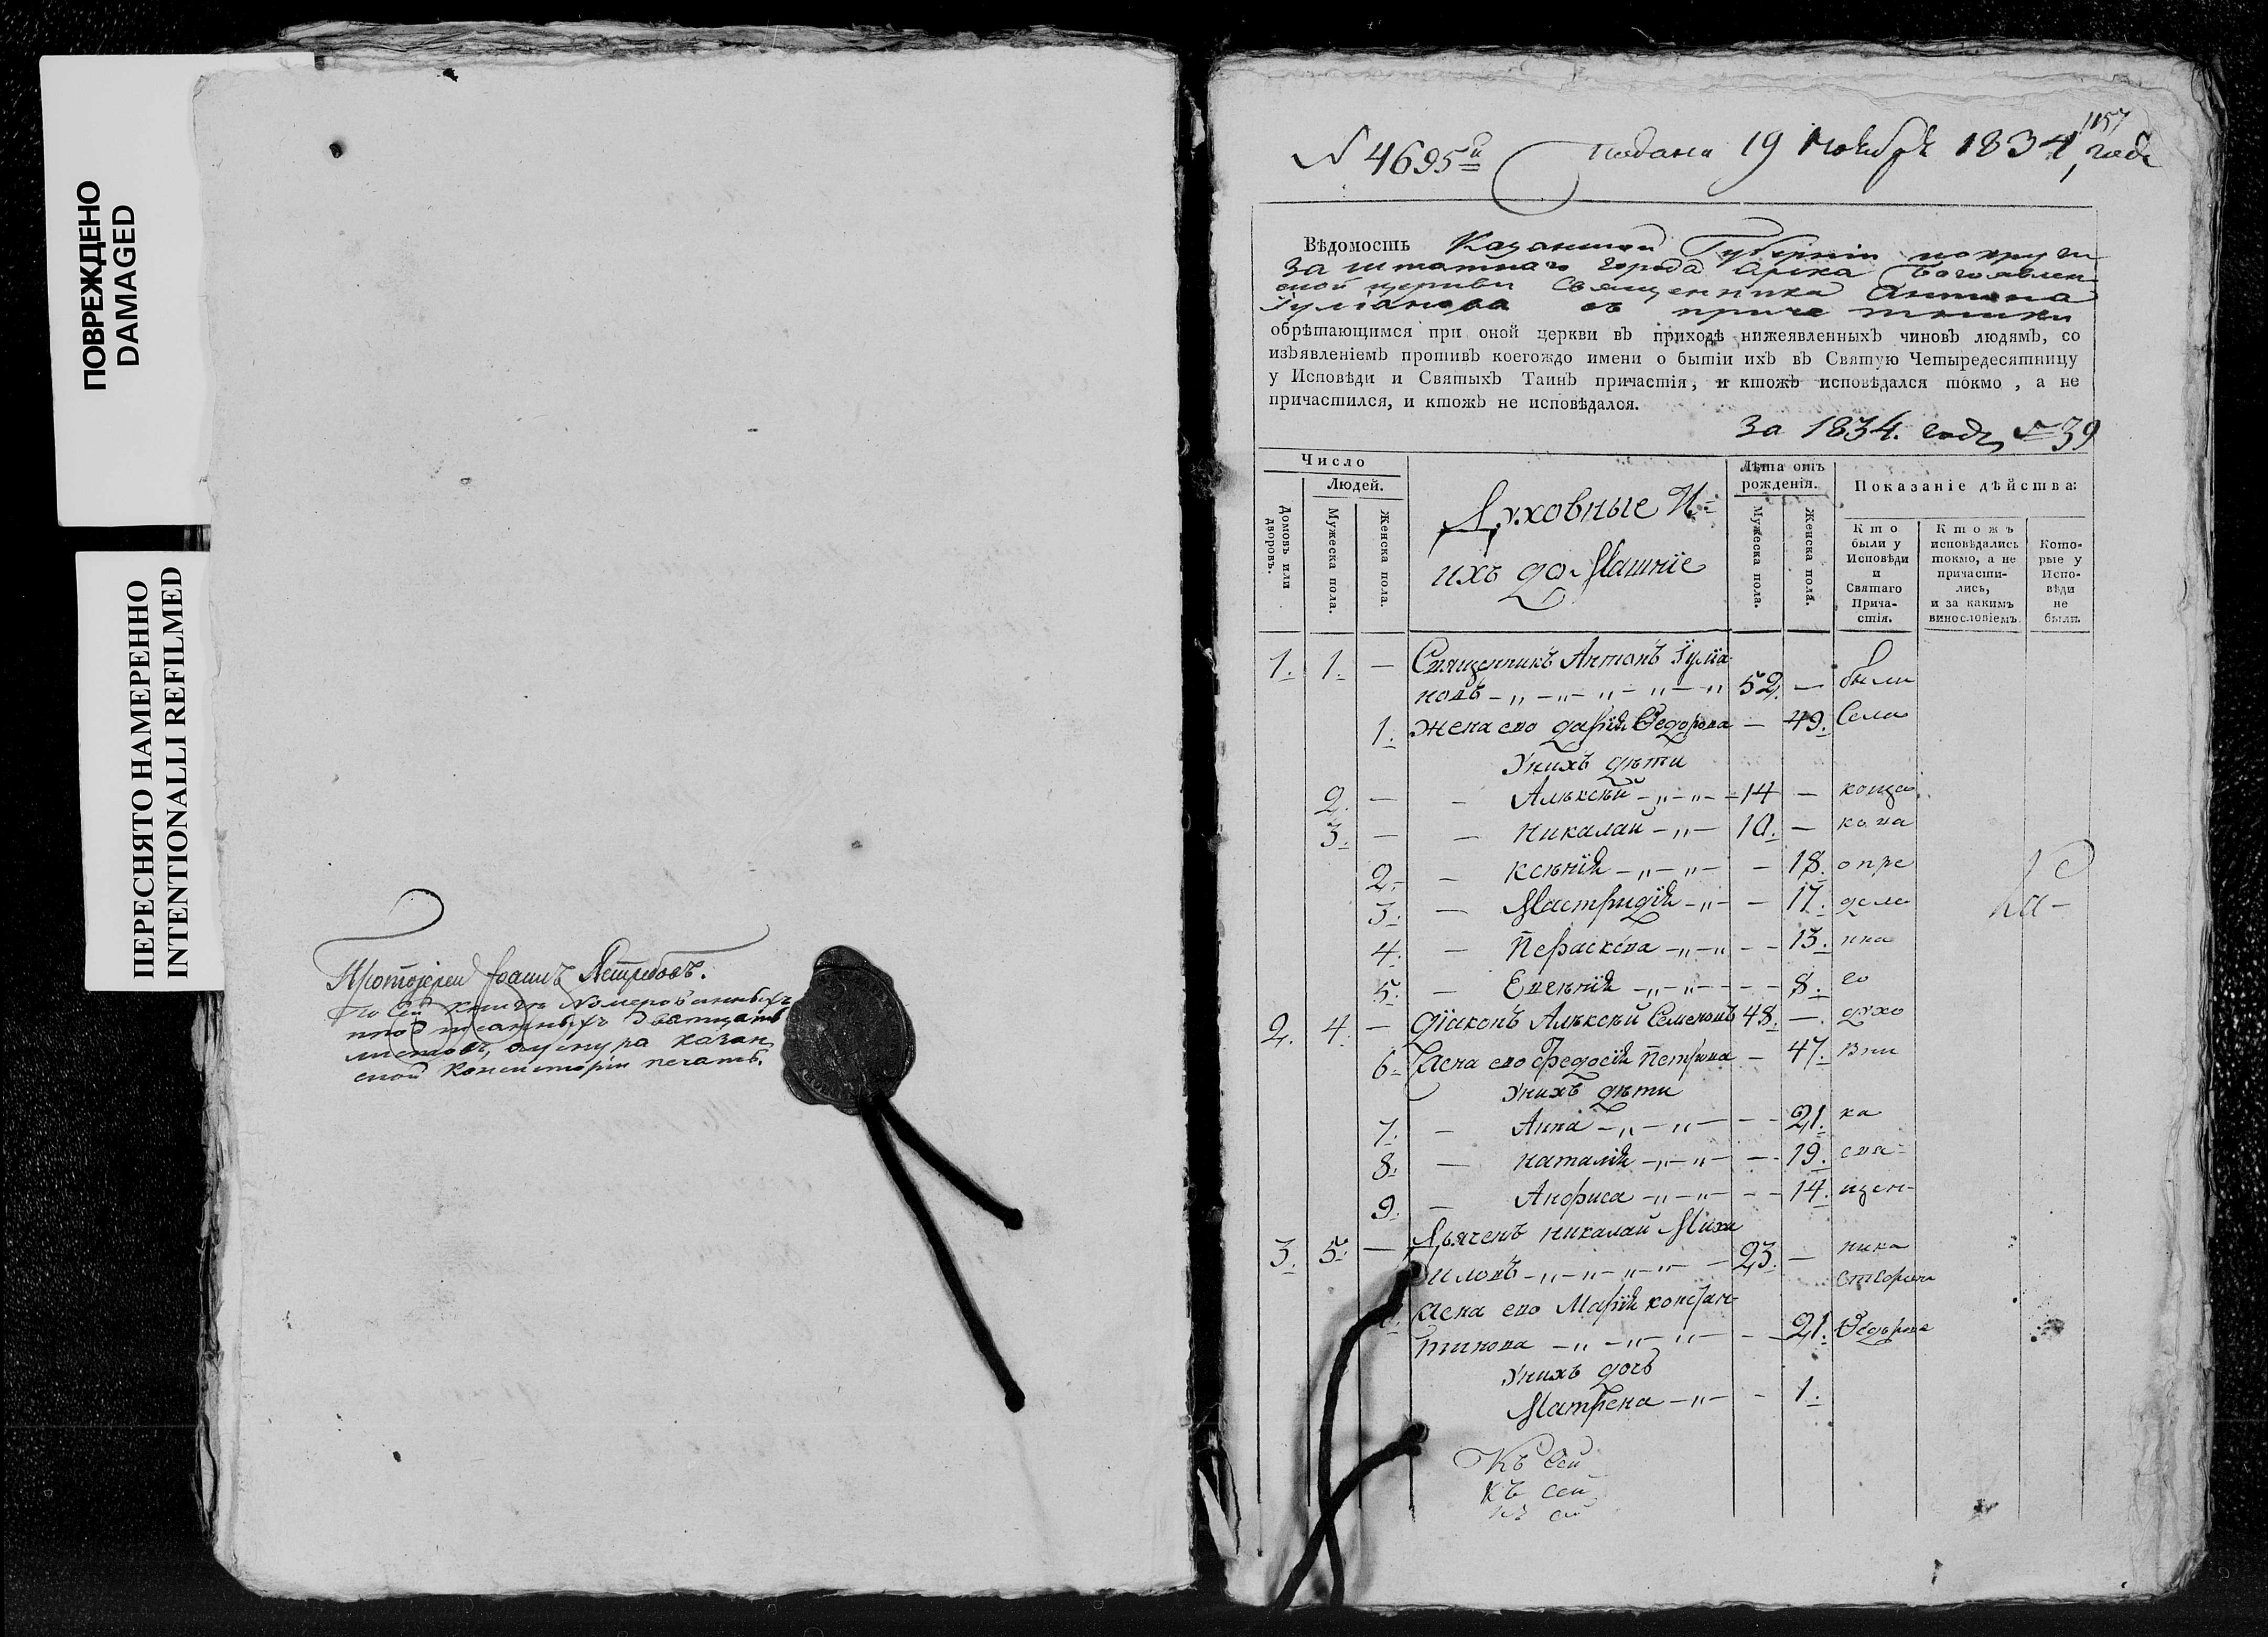 ПОВРЕЖДЕНО
DAMAGED
ПЕРЕСНЯТО НАМЕРЕННО
INTENTIONALLI REFILMED
Протоіерей Іоаннъ Ястребовъ.
По сей книгѣ номерованныхъ
дватцать
листовъ, у шнура казан
ской Консисторіи печать.
1157
N 4695й Подана 19 Ноября 1834, года
Вѣдомость Казанской Губерніи
За штатнаго города Арска Богоявлен
ской церкви Священника Антона
Гуліанова съ причетники
обрѣтающимся при оной церкви въ приходѣ нижеявленныхъ чиновъ людямъ, со
изъявленіемъ противъ коегождо имени о бытіи ихъ въ Святую Четыредесятницу
у Исповѣди и Святыхъ Таинъ причастія, и ктожъ исповѣдался токмо, а не
причастился, и ктожъ не исповѣдался.
За 1834. годъ № 39
Число
Людей.
Домовъ или дворовъ.
Мужеска пола.
Женска пола.
Духовные И=
ихъ домашніе
Лѣта отъ
рожденія.
Мужеска пола.
Женска пола.
Показаніе дѣйства:
Кто
были у
Исповѣди
и
Святаго
Прича-
стія.
Ктожъ
исповѣдались
токмо, а не
причасти-
лись,
и за какимъ
винословіемъ.
Кото-
рые у
Испо-
вѣди
не
были.
1. 1. — Священникъ Антонъ Гуліа
новъ 52. — были
1. Жена ево Дарія Ѳедорова — 49. Села
Унихъ дѣти
2. — — Алѣксѣй 14 —
3. — — Николай 10. —
2. — Ксѣнія — 18. опре
3. — Мастридія — 17. дѣле
4. — Параскѣва — 13. нна
5. — Евгѣнія — 8. го
2. 4. — Діаконъ Алѣксѣй Семеновъ 48. — духо
6. Жена ево Ѳедосія Петрова — 47. вни
Унихъ дѣти
7. — Анна — 21. ка
8. — Наталія — 19. свя=
9. — Анфиса — 14. щен-
3. 5. — Дьячекъ Николай Миха
иловъ 23. — ника
Жена ево Марія констан-
тинова — 21. Ѳедорова
Унихъ дочь
Матрена — 1.
Къ сей
къ сей